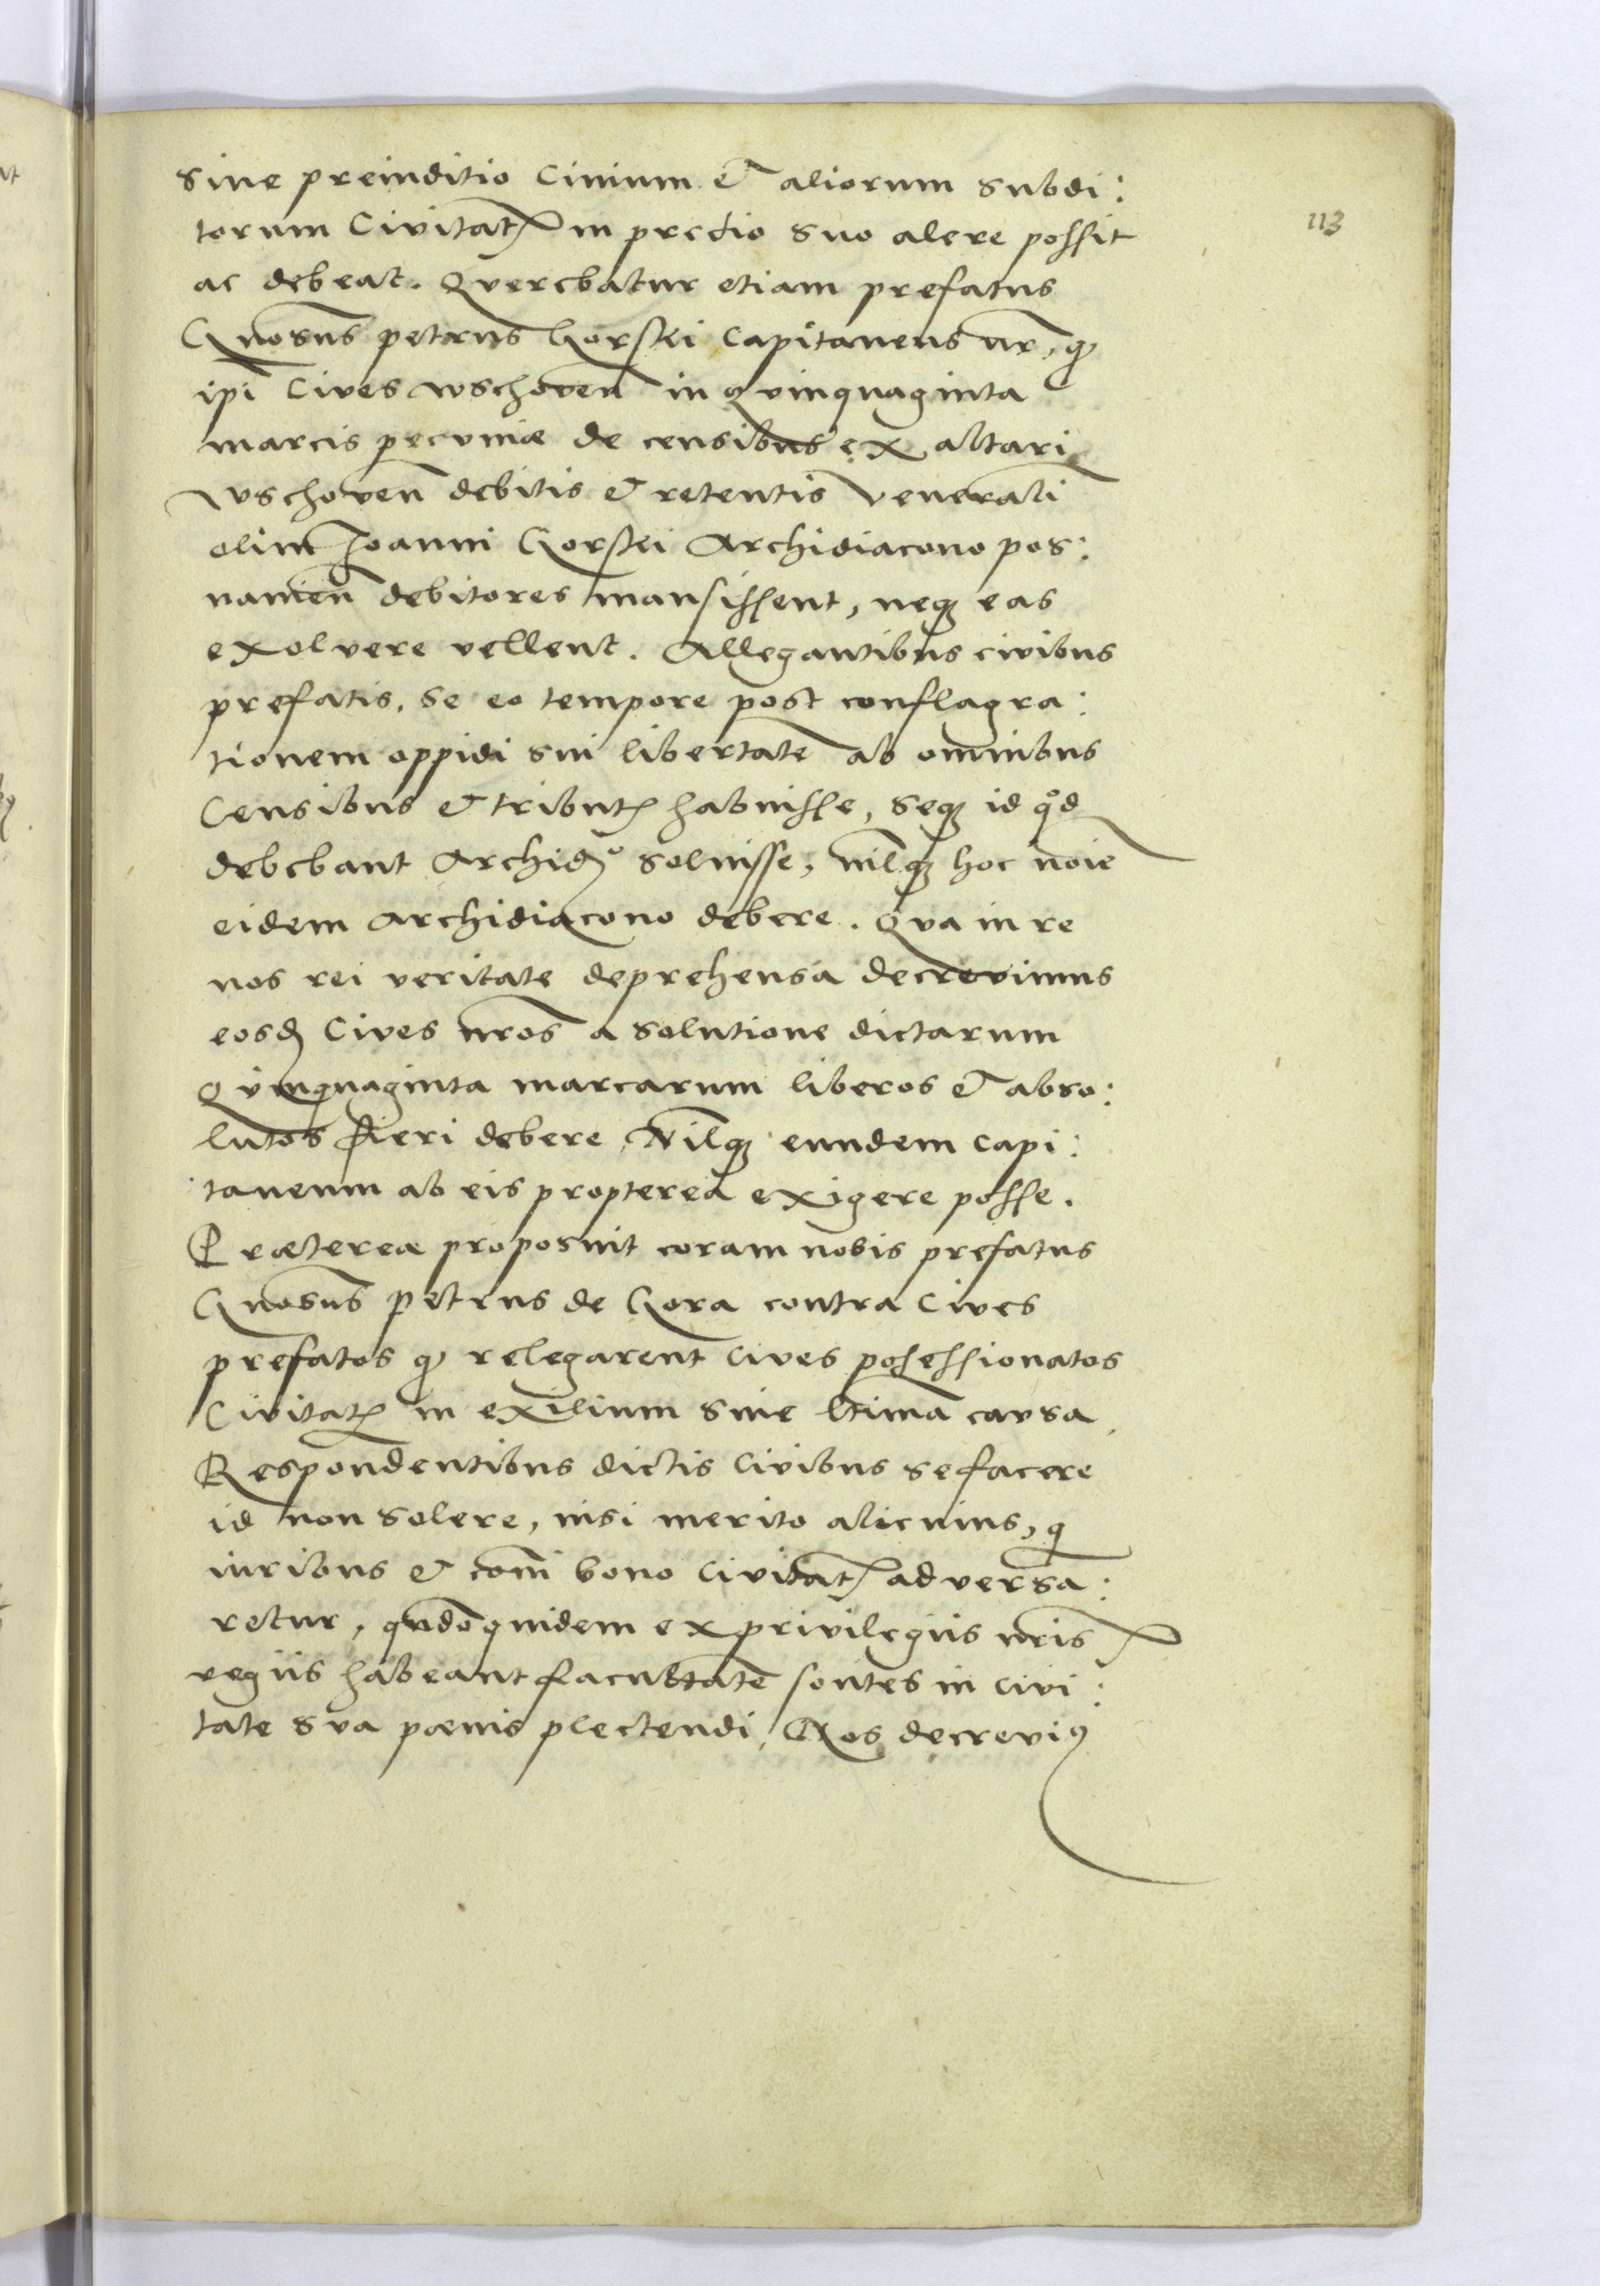 sine preiuditio Civium et aliorum subdi:
torum Civitatꝭ in predio suo alere possit
ac debeat. Querebatur etiam prefatus
Gnosus petrus Gorski Capitaneus nr̄, qɜ
ipī Cives wschoven̄ in quinquaginta
marcis pecuniæ de censibus ex altari
wschoven̄ debitis et retentis Venerabli
olim Joanni Gorski Archidiacono pos:
nanien̄ debitores mansissent, neqɜ eas
exolvere vellent. Allegantibus civibus
prefatis, se eo tempore post conflagra:
tionem oppidi sui libertatē ab omnibus
Censibus et tributꝭ habuisse, seqɜ id qōd
debebant Archidº soluisse, nīlqɜ hoc noīe
eidem Archidiacono debere. Qua in re
nos rei veritate deprehensa decrevimus
eosdꝭ Cives nr̄os a solutione dictarum
Quinquaginta marcarum liberos et abso:
lutos fieri debere, Nīlqɜ eundem capi:
taneum ab eis propterea exigere posse.
Præterea proposuit coram nobis prefatus
Gnosus petrus de Gora contra Cives
prefatos qɜ relegarent cives possessionatos
Civitatꝭ in exilium sine ltīma causa,
Respondentibus dictis Civibus se facere
id non solere, nisi merito alicuius, q̄
iuribus et com̄i bono Civitatꝭ adversa:
retur, qn̄doquidem ex privilegiis nr̄is
regiis habeant facultatē sontes in Civi:
tate sua pœnis plectendi, Nos decreviꝰ
113